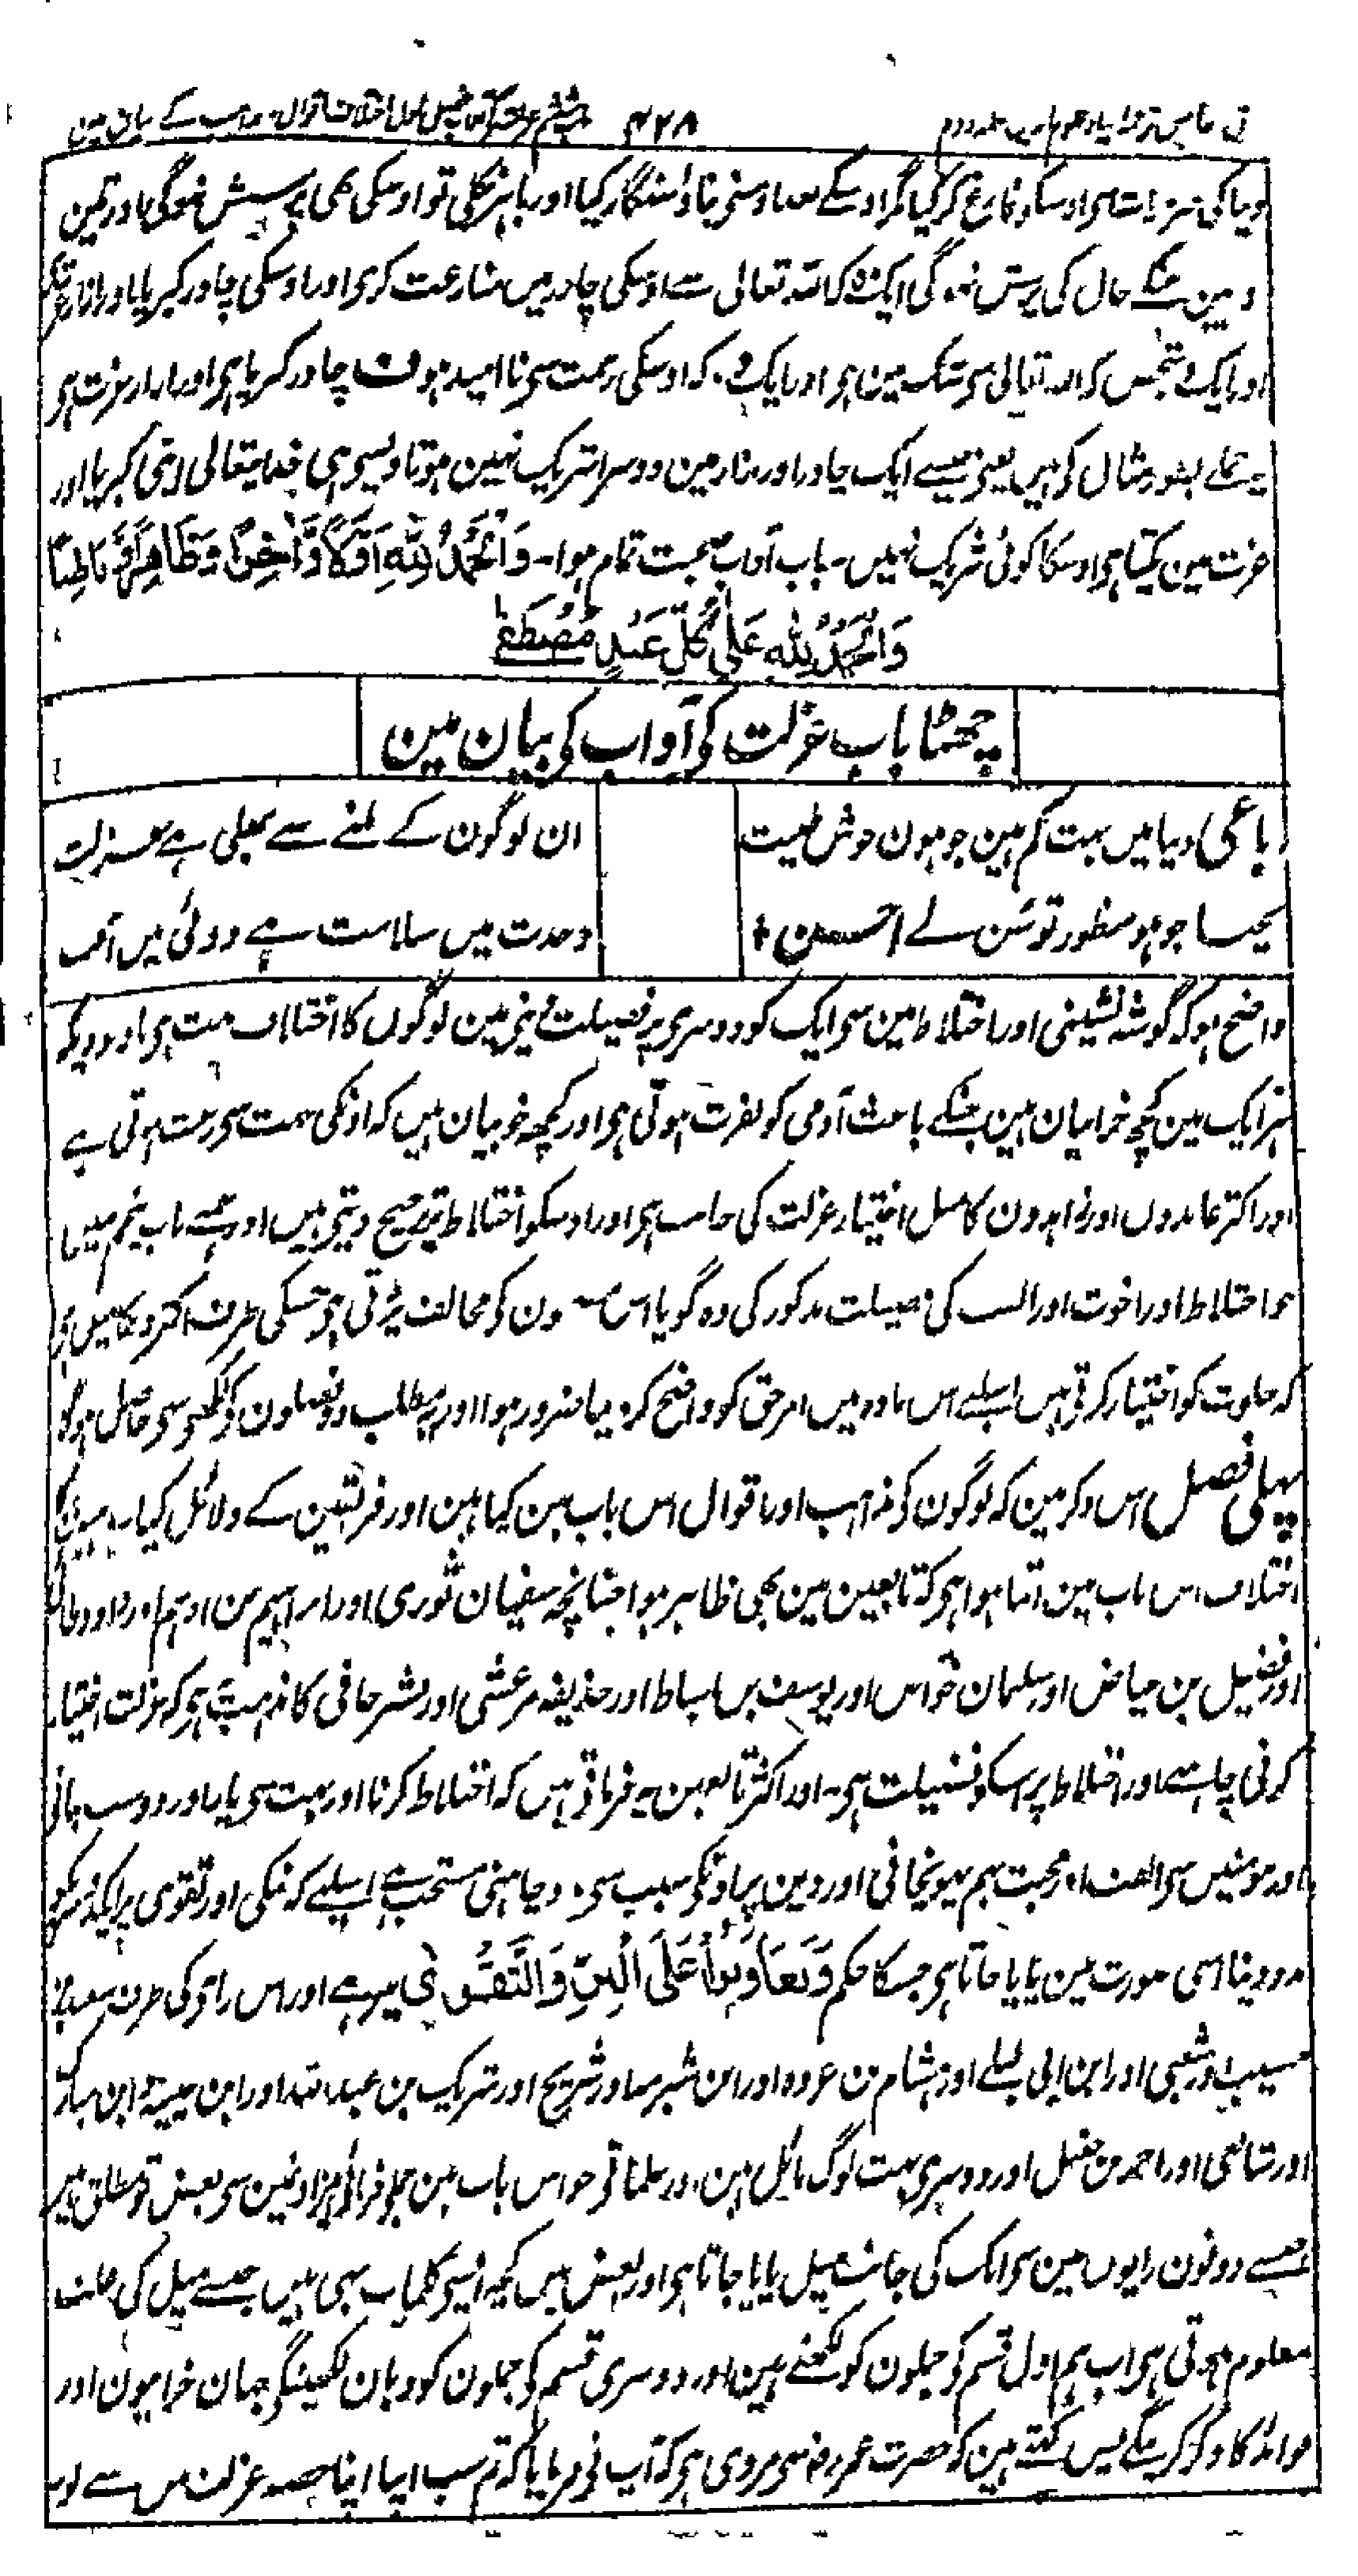 ۴۲۸
دنیا کی ضروریات سی اوسکو فارغ کر گیا مگر اوسکے بعد اوسنی بناؤ سنگار کیا اور باہر نکلی تو اوسکی بھی پرسش نہوگی اور تین
جنکے حال کی پرسش نہوگی ایک وہ کہ اللہ تعالی سے اوسکی چادر میں منازعت کری اور اوسکی چادر کبریا
اور ایک وہ شخص کہ اللہ تعالی سی شک مین ہی اور ایک وہ کہ اوسکی رحمت سی نا امید ہو ف چادر کبریا ہی اور ازار عزت ہی
یہ جملے بطور مثال کی ہیں یعنی جیسے ایک چادر اور ازار مین دوسرا شریک نہین ہوتا ویسی ہی خدایتعالی اپنی کبریا اور
عزت مین یکتا ہی اوسکا کوئی شریک نہیں ۔ باب آداب صحبت تمام ہوا۔ وَالْحَمْدُ لِلّٰهِ اَوَّلًا وَّاٰخِرًا وَّظَاهِرًا وَّبَاطِنًا
وَالْحَمْدُ لِلّٰهِ عَلٰی كُلِّ عَبْدٍ مُصْطَفٰی
چھٹا باب عزلت کی آداب کی بیان مین
رباعی دنیا میں بہت کم ہین جو ہون خوش طینت
ان لوگون کے ملنے سے بھلی ہے عزلت
بچنا جو ہو منظور تو سن لے احسن +
وحدت میں سلامت ہے دوئی میں آفت
واضح ہو کہ گوشہ نشینی اور اختلاط مین سی ایک کو دوسری پر فضیلت دینی مین لوگوں کا اختلاف بہت ہی
ہر ایک مین کچھ خرابیان ہین جنکے باعث آدمی کو نفرت ہوتی ہی اور کچھ خوبیان ہیں کہ اونکی جہت سی رغبت ہوتی ہے
اور اکثر عابدوں اور زاہدون کا میل اختیار عزلت کی جانب ہی اور اوسکو اختلاط پر ترجیح دیتی ہیں اور ہمنے باب پنجم میں
جو اختلاط اور اخوت اور الفت کی فضیلت مذکور کی وہ گویا اس کو مخالف پڑتی ہی جسکی طرف اکثر
کہ خلوت کو اختیار کرتی ہیں اسلیے اس مادہ میں امر حق کو واضح کر دینا ضرور ہوا اور یہ مطلب دو فصلون کی لکھنی سی حاصل ہوگا
پہلی فصل اس ذکر مین کہ لوگون کی مذاہب اور اقوال اس باب مین کیا ہین اور فریقین کے دلائل کیا
اختلاف اس باب مین اتنا ہوا ہی کہ تابعین مین بھی ظاہر ہوا چنانچہ سفیان ثوری اور ابراہیم بن ادہم اور داود طائی
اور فضیل بن عیاض اور سلیمان خواص اور یوسف بن اسباط اور حذیفہ مرعشی اور بشر حافی کا مذہب یہ ہی کہ عزلت اختیار
کرنی چاہیے اور اختلاط پر اسکو فضیلت ہی۔ اور اکثر تابعین یہ فرماتی ہیں کہ اختلاط کرنا اور بہت سی یار اور دوست بنانی
اور مومنین سی الفت اور محبت بہم پہونچانی اور دین پر اونکی سبب سی مدد چاہنی مستحب ہے اسلیے کہ نیکی اور تقوی پر
مدد دینا اسی صورت مین پایا جاتا ہی جسکا حکم وَتَعَاوَنُوْا عَلَی الْبِرِّ وَالتَّقْوٰی میں ہے اور اس رای کی طرف سعید بن
مسیب اور شعبی اور ابن ابی لیلے اور ہشام بن عروہ اور ابن شبرمہ اور شریح اور شریک بن عبداللہ اور ابن عیینہ اور ابن مبارک
اور شافعی اور احمد بن حنبل اور دوسری بہت لوگ مائل ہین۔ اور علما نی جو اس باب مین جملے فرمائی ہین اونمین سی بعض تو مطلق ہیں
جنسے دونون رایوں مین سی ایک کی جانب میل پایا جاتا ہی اور بعض میں کچھ ایسی کلمات بھی ہیں جنسے میل کی علت
معلوم ہوتی ہی اب ہم اول قسم کی جملون کو لکھتے ہین اور دوسری قسم کی جملون کو وہان لکھینگے جہان خرابیون اور
فوائد کا ذکر کرینگے پس کہتے ہین کہ حضرت عمر رضہ سی مروی ہی کہ آپ نی فرمایا کہ تم سب اپنا اپنا حصہ عزلت میں سے لو